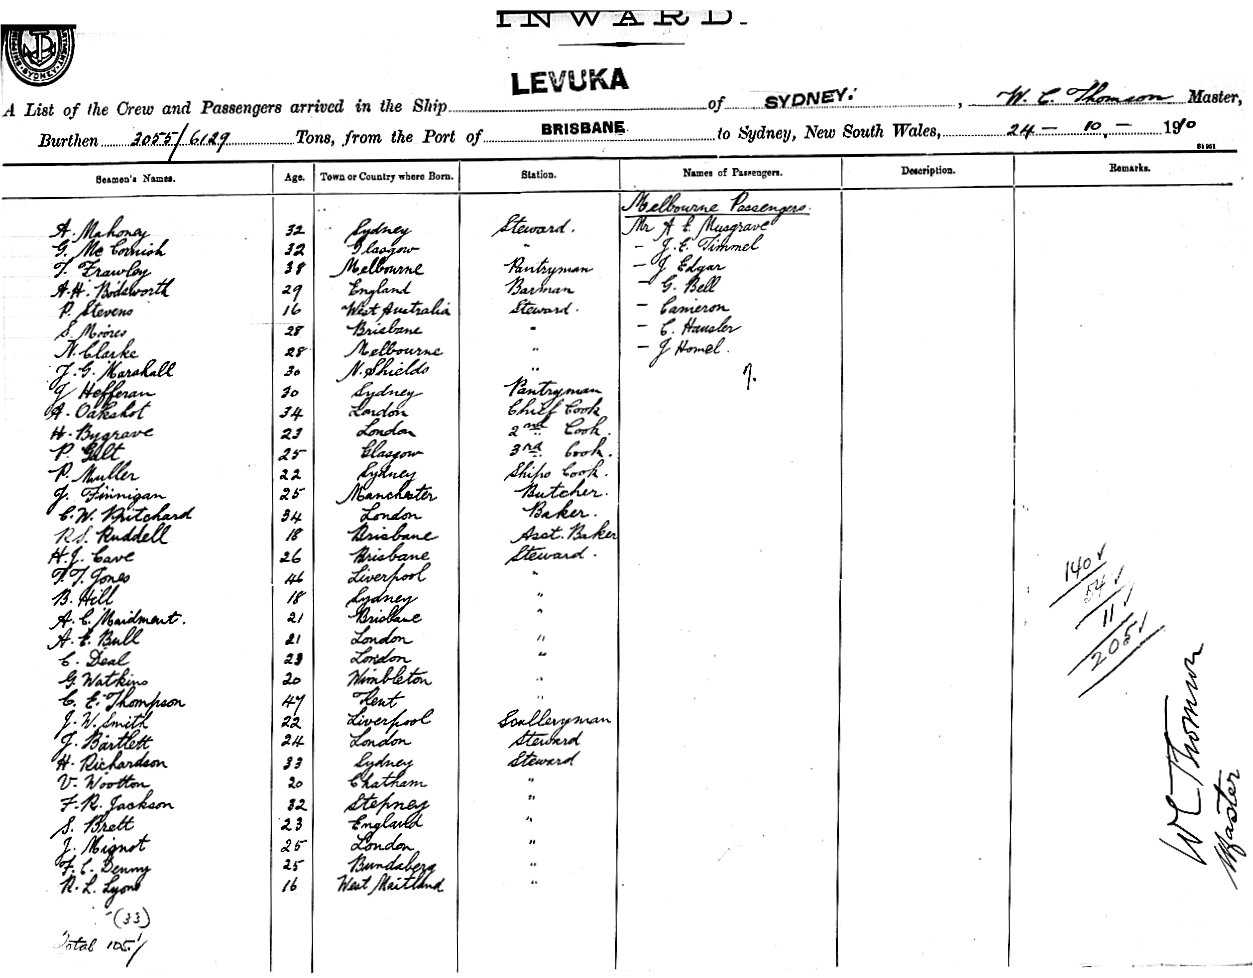 INWARD.
LEVUKA
A List of the Crew and Passengers arrived in the Ship of SYDNEY: , W. C. Thomson Master,
Burthen 3055/6129 Tons, from the Port of BRISBANE to Sydney, New South Wales, 24 - 10. - 1910
Seamen's Names. Age. Town or Country where Born. Station. Names of Passengers. Description. Remarks.
Melbourne Passengers.
A. Mahoney 32 Sydney Steward. Mr A E Musgrave
G. Mc Cornish 32 Glasgow " - J. E. Timmel
T. Frawley 38 Melbourne Pantryman - J Edgar
A. H. Bodsworth 29 England Barman - G. Bell
P. Stevens 16 West Australia Steward. - Cameron
S. Moores 28 Brisbane " - C. Hansler
N. Clarke 28 Melbourne " - J Homel.
J. G. Marshall 30 N. Shields "
7.
J Hefferan 30 Sydney Pantryman
A. Oakshot 34 London Chief Cook
H. Bygrave 23 London 2nd Cook.
P. Galt 25 Glasgow 3rd Cook.
P. Muller 22 Sydney Ships Cook.
J. Finnigan 25 Manchester Butcher.
C. W. Pritchard 34 London Baker.
R. S. Ruddell 18 Brisbane Asst. Baker
H. J. Cave 26 Brisbane Steward.
T. T. Jones 46 Liverpool "
B. Hill 18 Sydney "
A. C. Maidment. 21 Brisbane "
A. E. Bull 21 London "
C. Deal 23 London "
G. Watkins 20 Wimbleton "
C. E. Thompson 47 Kent "
J. W. Smith 22 Liverpool Sculleryman
J. Bartlett 24 London Steward
H. Richardson 33 Sydney Steward
V. Wootton 20 Chatham "
F. R. Jackson 32 Stepney "
S. Brett 23 England "
J. Mignot 25 London "
F. C. Denny 25 Bundaberg "
R. L. Lyons 16 West Maitland "
(33)
Total 105
140
54
11
205
W C Thomson
Master